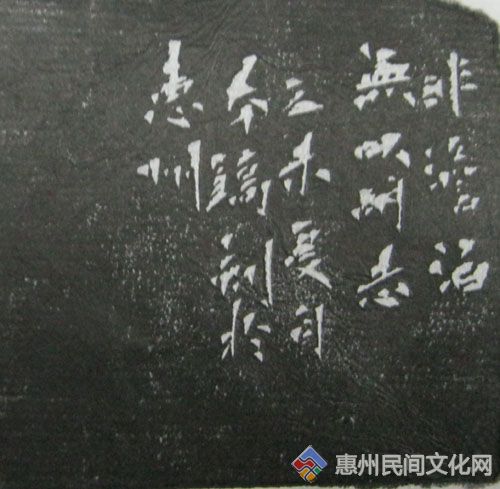 非澹泊
無以明志
乙未夏月
本鎬刻於
惠州
惠州民间文化网